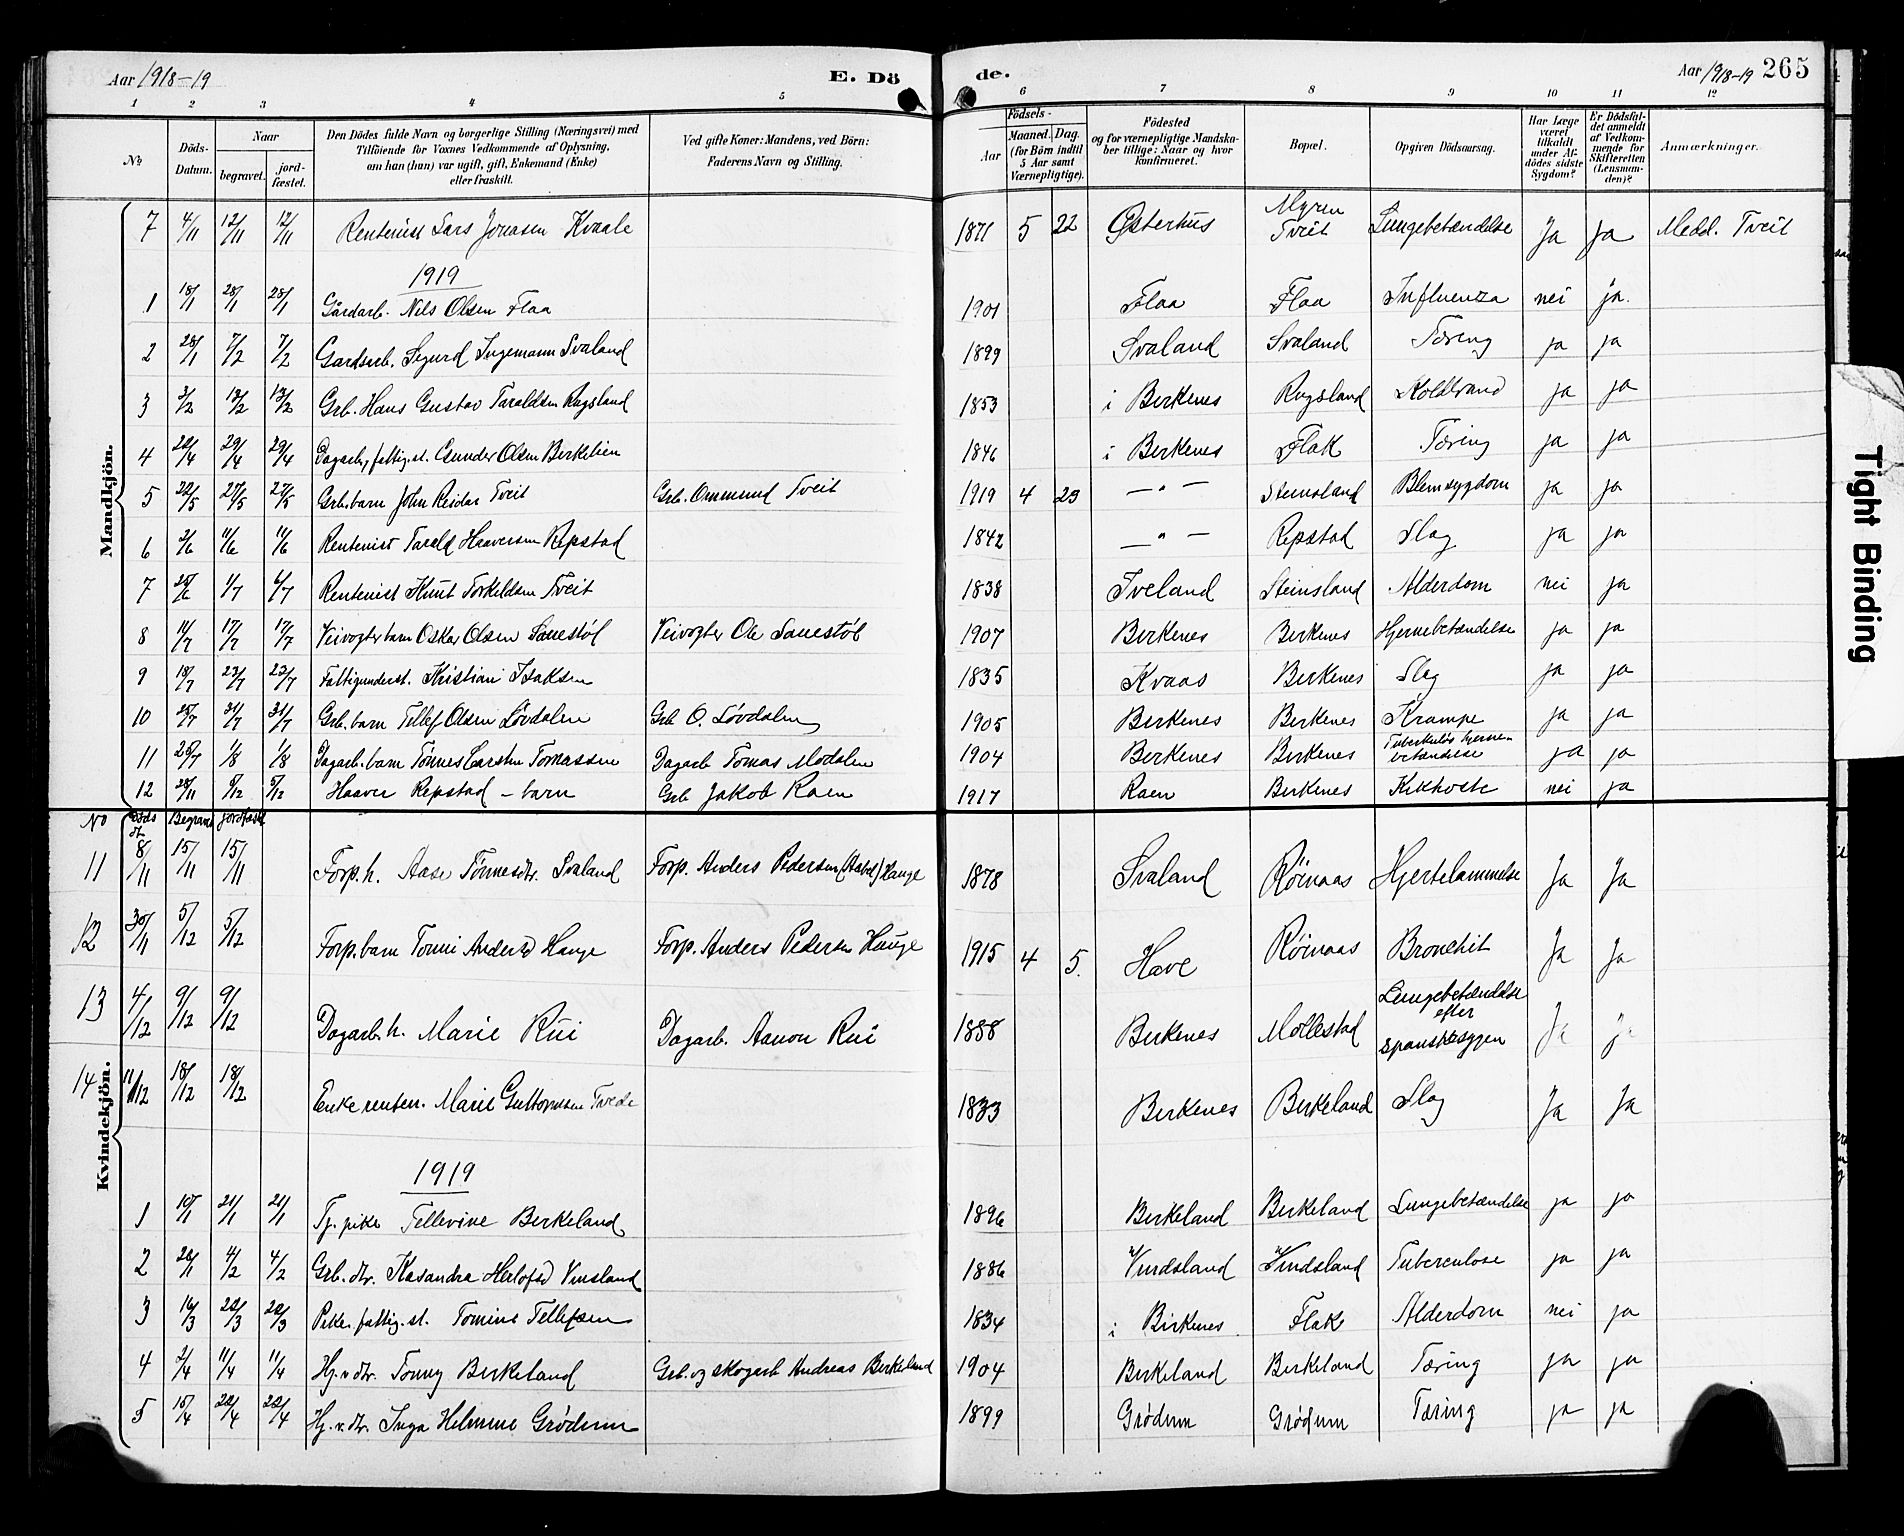 Aar 1918-19
E. Dö
de.
Aar 1918-19 265
1 2 3 4 5 6 7 8 9 10 11 12
No
Döds-Datum.
Naar
begravet.
jord-fæstet.
Den Dödes fulde Navn og borgerlige Stilling (Næringsvei) med
Tilföiende for Voxnes Vedkommende af Oplysning,
om han (hun) var ugift, gift, Enkemand (Enke)
eller fraskilt.
Ved gifte Koner: Mandens, ved Börn:
Faderens Navn og Stilling.
Födsels-
Aar
Maaned. Dag.
(for Börn indtil
5 Aar samt
Værnepligtige).
Födested
og for værnepligtige Mandska-
ber tillige: Naar og hvor
konfirmeret.
Bopæl.
Opgiven Dödsaarsag.
Har Læge
været
tilkaldt
under Af-
dödes sidste
Sygdom?
Er Dödsfal-
det anmeldt
af Vedkom-
mende for
Skifteretten
(Lensman-
den)?
Anmærkninger.
Mandkjön.
7 4/11 12/11 12/11 Rentenist Lars Jonasen Kvaale 1871 5 22 Østerhus Myren Tveit Lungebetændelse Ja Ja Medd. Tveit
1919
1 18/1 28/1 28/1 Gårdarb. Nils Olsen Flaa 1901 Flaa Flaa Influenza nei ja.
2 28/1 7/2 7/2 Gardsarb. Sigurd Ingemann Svaland 1899 Svaland Svaland Tæring ja ja
3 3/2 13/2 13/2 Grb. Hans Gustav Taraldsen Rugsland 1853 i Birkenes Rugsland Koldbrand ja ja
4 22/4 29/4 29/4 Dagarb, fattig.st. Gunder Olsen Berkelien 1846 i Birkenes Flak Tæring ja ja
5 22/5 27/5 27/5 Grb. barn John Reidar Tveit Grb. Ommund Tveit 1919 4 23 — " — Steinsland Blemsygdom ja ja
6 3/6 11/6 11/6 Rentenist Tarald Haaversen Repstad 1842 — " — Repstad Slag ja ja
7 25/6 1/7 1/7 Rentenist Knut Torkeldsen Tveit 1838 Iveland Steinsland Alderdom nei ja
8 11/7 17/7 17/7 Veivogter barn Oskar Olsen Sanestöl Veivogter Ole Sanestöl 1907 Birkenes Birkenes Hjernebetændelse ja ja
9 18/7 23/7 23/7 Fattigunderst. Kristian Isaksen 1835 Kvaas Birkenes Slag ja ja
10 25/7 31/7 31/7 Grb. barn Tellef Olsen Løvdalen Grb O. Løvdalen 1905 Birkenes Birkenes Krampe ja ja
11 25/7 1/8 1/8 Dagarb. barn Tønnes Carsten Tomassen Dagarb Tomas Modalen 1904 Birkenes Birkenes Tuberkuløs hjerne-betændelse ja ja
12 28/11 5/12 5/12 Haaver Repstad - barn Grb Jakob Raen 1917 Raen Birkenes Kikhoste nei ja
No Døds dt Begravet Jordfæst
11 8/11 15/11 15/11 Forp. h. Aase Tønnesdtr. Svaland Forp. Anders Pedersen (Stabel) Hauge 1878 Svaland Røinaas Hjertelammelse Ja Ja
12 30/11 5/12 5/12 Forp. barn Tonni Andersd Hauge Forp. Anders Pedersen Hauge 1915 4 5. Have Røinaas Bronchit Ja Ja
13 4/12 9/12 9/12 Dagarb. h. Marie Rui Dagarb. Aanon Rui 1888 Birkenes Mollestad Lungebetændelse efter spanskesygen Ja ja
Kvindekjön.
14 11/12 18/12 18/12 Enke renten. Marie Guttormsen Tvede 1833 Birkenes Birkeland Slag Ja Ja
1919
1 10/1 21/1 21/1 Tj. pike Tellevine Birkeland 1896 Birkeland Birkeland Lungebetændelse ja ja
2 28/1 4/2 4/2 Grb. dtr. Kasandra Herlofsd Vinsland 1886 Vindsland Vindsland Tuberculose ja ja
3 16/3 22/3 22/3 Pike. fattig. st. Tomine Tellefsen 1834 i Birkenes Flak Alderdom nei ja
4 3/4 11/4 11/4 Hj. v dtr. Tonny Birkeland Grb. og skogarb Andreas Birkeland 1904 Birkeland Birkeland Tæring ja ja
5 15/4 22/4 22/4 Hj. v. dtr. Inga Helmine Grødum 1899 Grødum Grødum Tæring ja ja
Tight Binding